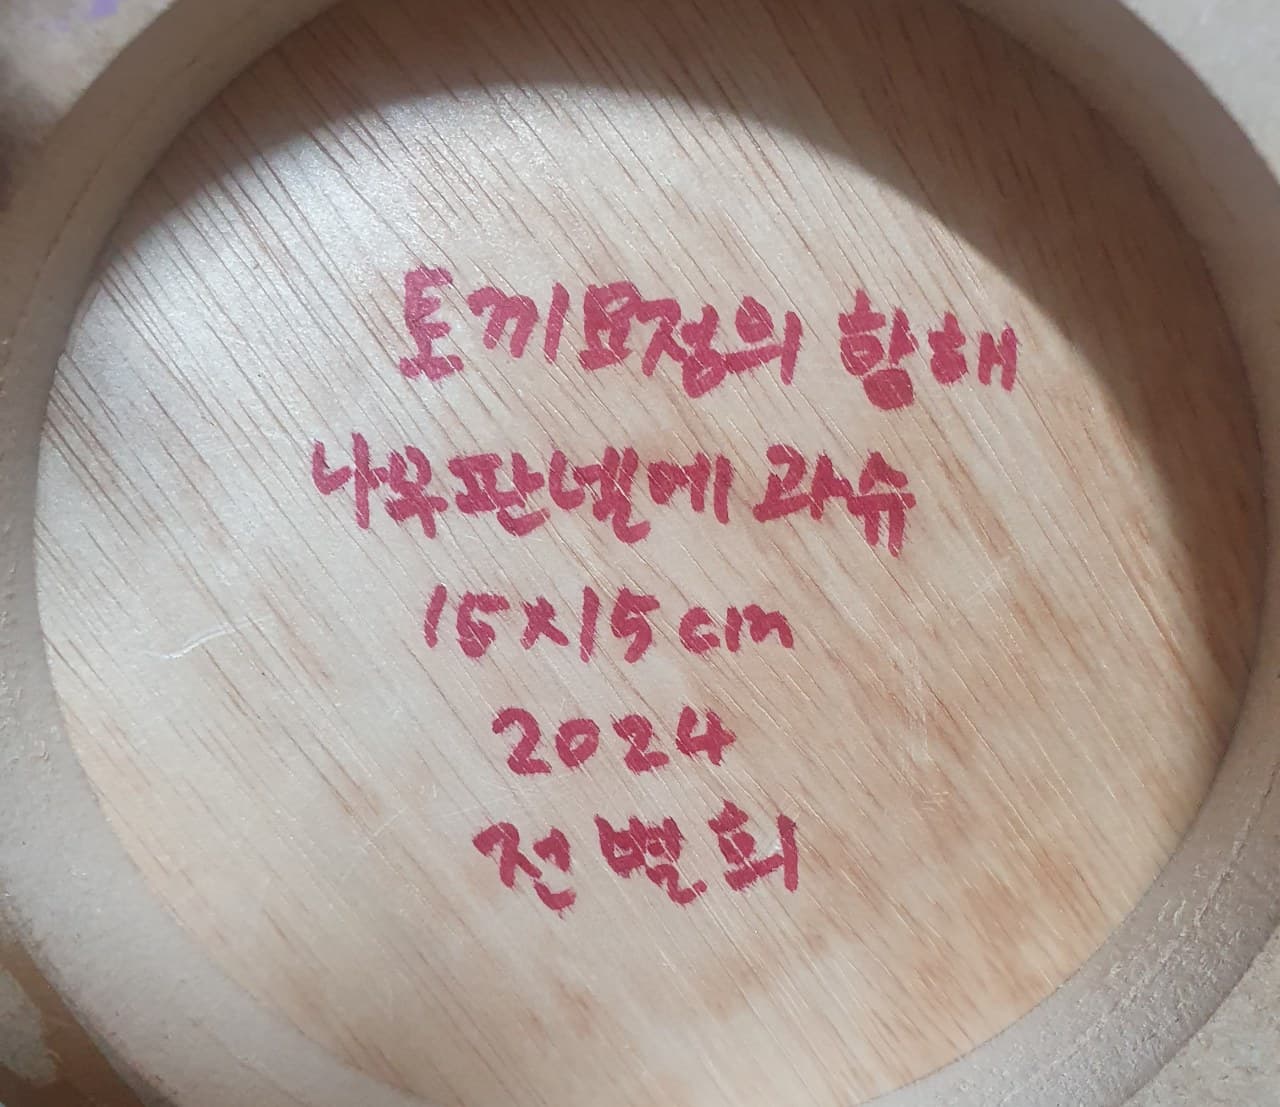 토끼요정의 항해
나무판넬에 과슈
15x15cm
2024
전별회